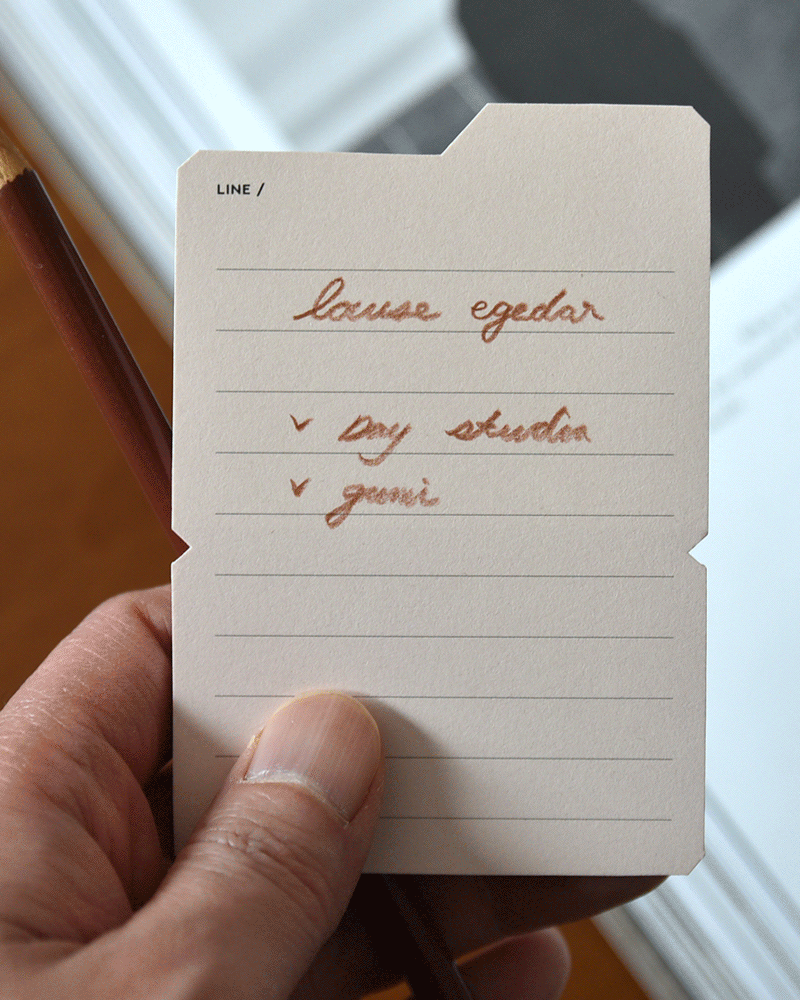 LINE /
louise egedar
Day studio
gumi